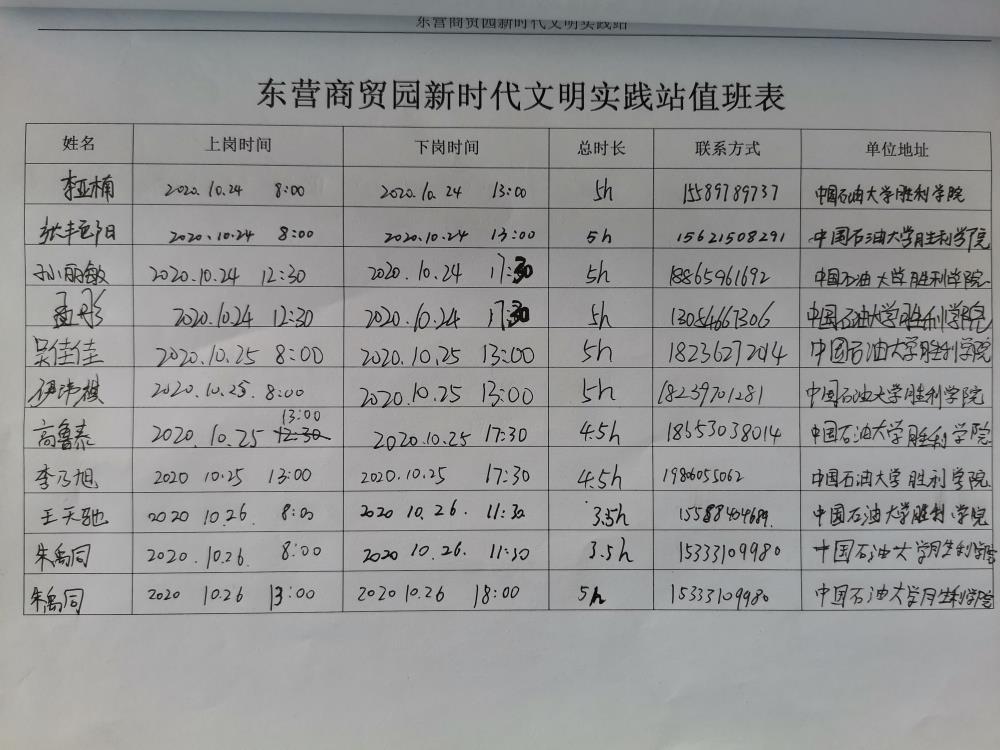 东营商贸园新时代文明实践站
东营商贸园新时代文明实践站值班表
姓名 上岗时间 下岗时间 总时长 联系方式 单位地址
李亚楠 2020.10.24 8:00 2020.10.24 13:00 5h 15589789737 中国石油大学胜利学院
张丰 2020.10.24 8:00 2020.10.24 13:00 5h 15621508291 中国石油大学胜利学院
孙丽敏 2020.10.24 12:30 2020.10.24 17:30 5h 18865961692 中国石油大学胜利学院
孟彤 2020.10.24 12:30 2020.10.24 17:30 5h 13054667306 中国石油大学胜利学院
吴佳佳 2020.10.25 8:00 2020.10.25 13:00 5h 中国石油大学胜利学院
2020.10.25. 8:00 2020.10.25 13:00 5h 18239701281 中国石油大学胜利学院
13:00
高鲁泰 2020.10.25 12:30 2020.10.25 17:30 4.5h 18553038014 中国石油大学胜利学院
李乃旭 2020 10.25 13:00 2020.10.25 17:30 4.5h 1986055062 中国石油大学胜利学院
王天驰 2020 10.26. 8:00 2020 10.26. 11:30 3.5h 15588404689. 中国石油大学胜利学院
朱禹同 2020.10.26. 8:00 2020 10.26. 11:30 3.5h 15333109980 中国石油大学胜利学院
朱禹同 2020 10.26 13:00 2020 10.26 18:00 5h 15333109980 中国石油大学胜利学院